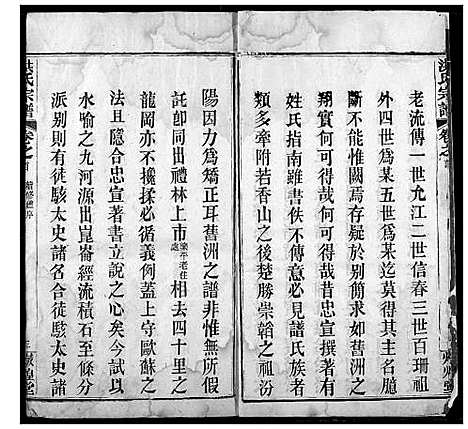 洪氏宗譜
卷之
老流傳一世允江二世信春三世百珊祖
外四世爲某五世爲某迄莫得其主名臆
斷不能惟國焉存疑於別若舊洲之
翔實何可得哉昔忠宣撰著有
姓氏指南雖書佚不傳意必見譜氏族者
類多牽附若香山之後楚勝崇韜之祖汾
陽因力爲矯正耳舊洲之譜非惟無所假
託卽而出禮林上市樂平老住處相去四十里之
龍岡亦不援揉必循義例蓋上守歐蘇之
法且隱合忠宣著書立說之心矣今試以
水喻之九河源出崑崙經流積石至條分
派別則有徒駭太史諸名合徒駭太史諸
洪氏宗譜
卷之
續修譜序
三
敦煌堂